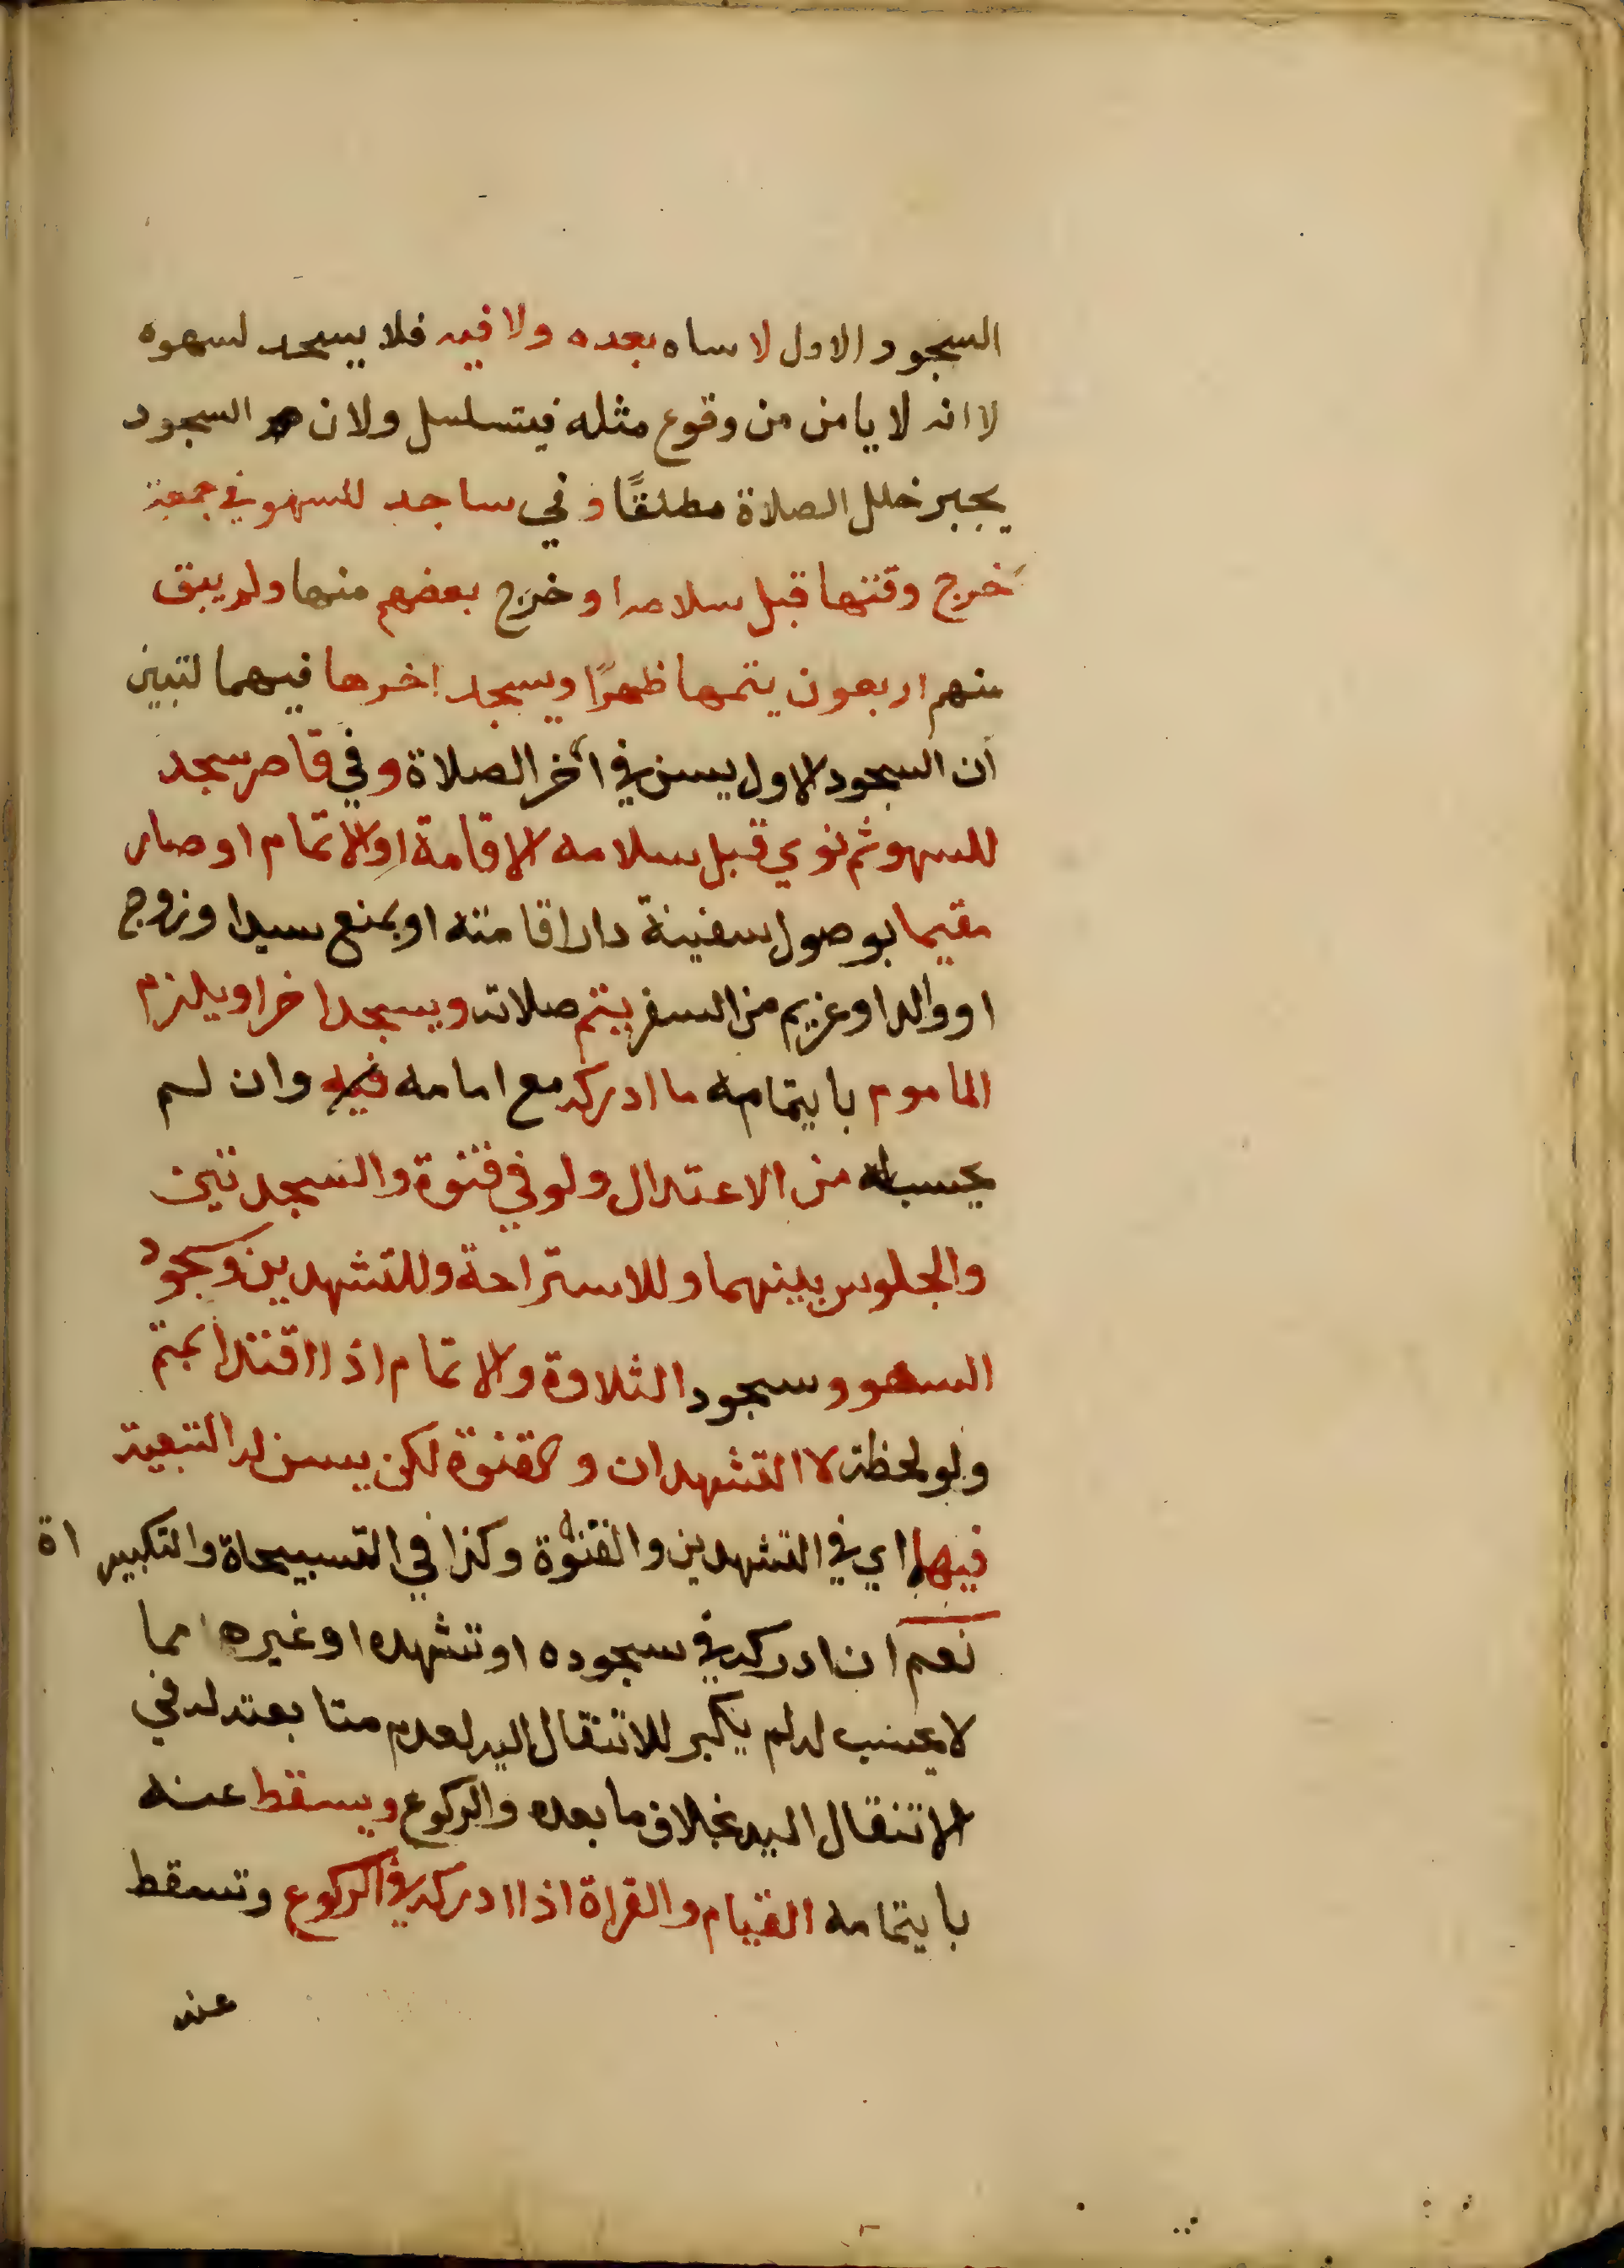 السجود الاول لا ساه بعده ولا فيه فلا يسجد لسهوه
لا انه لا يامن من وقوع مثله فيتسلسل ولان السجود
يجبر خلل الصلاة مطلقًا وفي ساجد للسهو في جمعة
خرج وقتها قبل سلامه او خرج بعضهم منها ولم يبق
منهم اربعون يتمها ظهرًا ويسجد اخرها فيهما لتبين
أن السجود الاول ليس في آخر الصلاة وفي قاصر سجد
للسهو ثم نوي قبل سلامه الاقامة او الاتمام او صار
مقيما بوصول سفينة دار اقامته او بمنع سيد او زوج
او والد او غريم من السفر يتم صلاته ويسجد اخرا ويلزم
الماموم بايتمامه ما ادركه مع امامه فيه وان لم
يحسب له من الاعتدال ولو في قنوة والسجدتين
والجلوس بينهما وللاستراحة وللتشهدين وسجود
السهو وسجود الثلاوة والاتمام اذا اقتدا بمتم
ولو لحظة لا التشهدان والقنوة لكن يسن له التبعية
فيها اي في التشهدين والقنوة وكذا في التسبيحاة والتكبير اة
نعم ان ادركه في سجوده او تشهده او غيره مما
لا يحسب له لم يكبر للانتقال اليه لعدم متابعته له في
الانتقال اليه بخلاف ما بعده والركوع ويسقط عنه
بايتمامه القيام والقراة اذا ادركه في الركوع وتسقط
عند